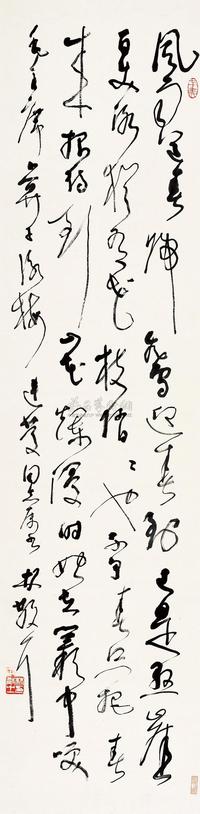 風雨送春归飛雪迎春到已是悬崖
百丈冰犹有花枝俏々也不争春只把春
来报待到山花爛漫时她在叢中笑
毛主席算子咏梅 同志属书 林散耳